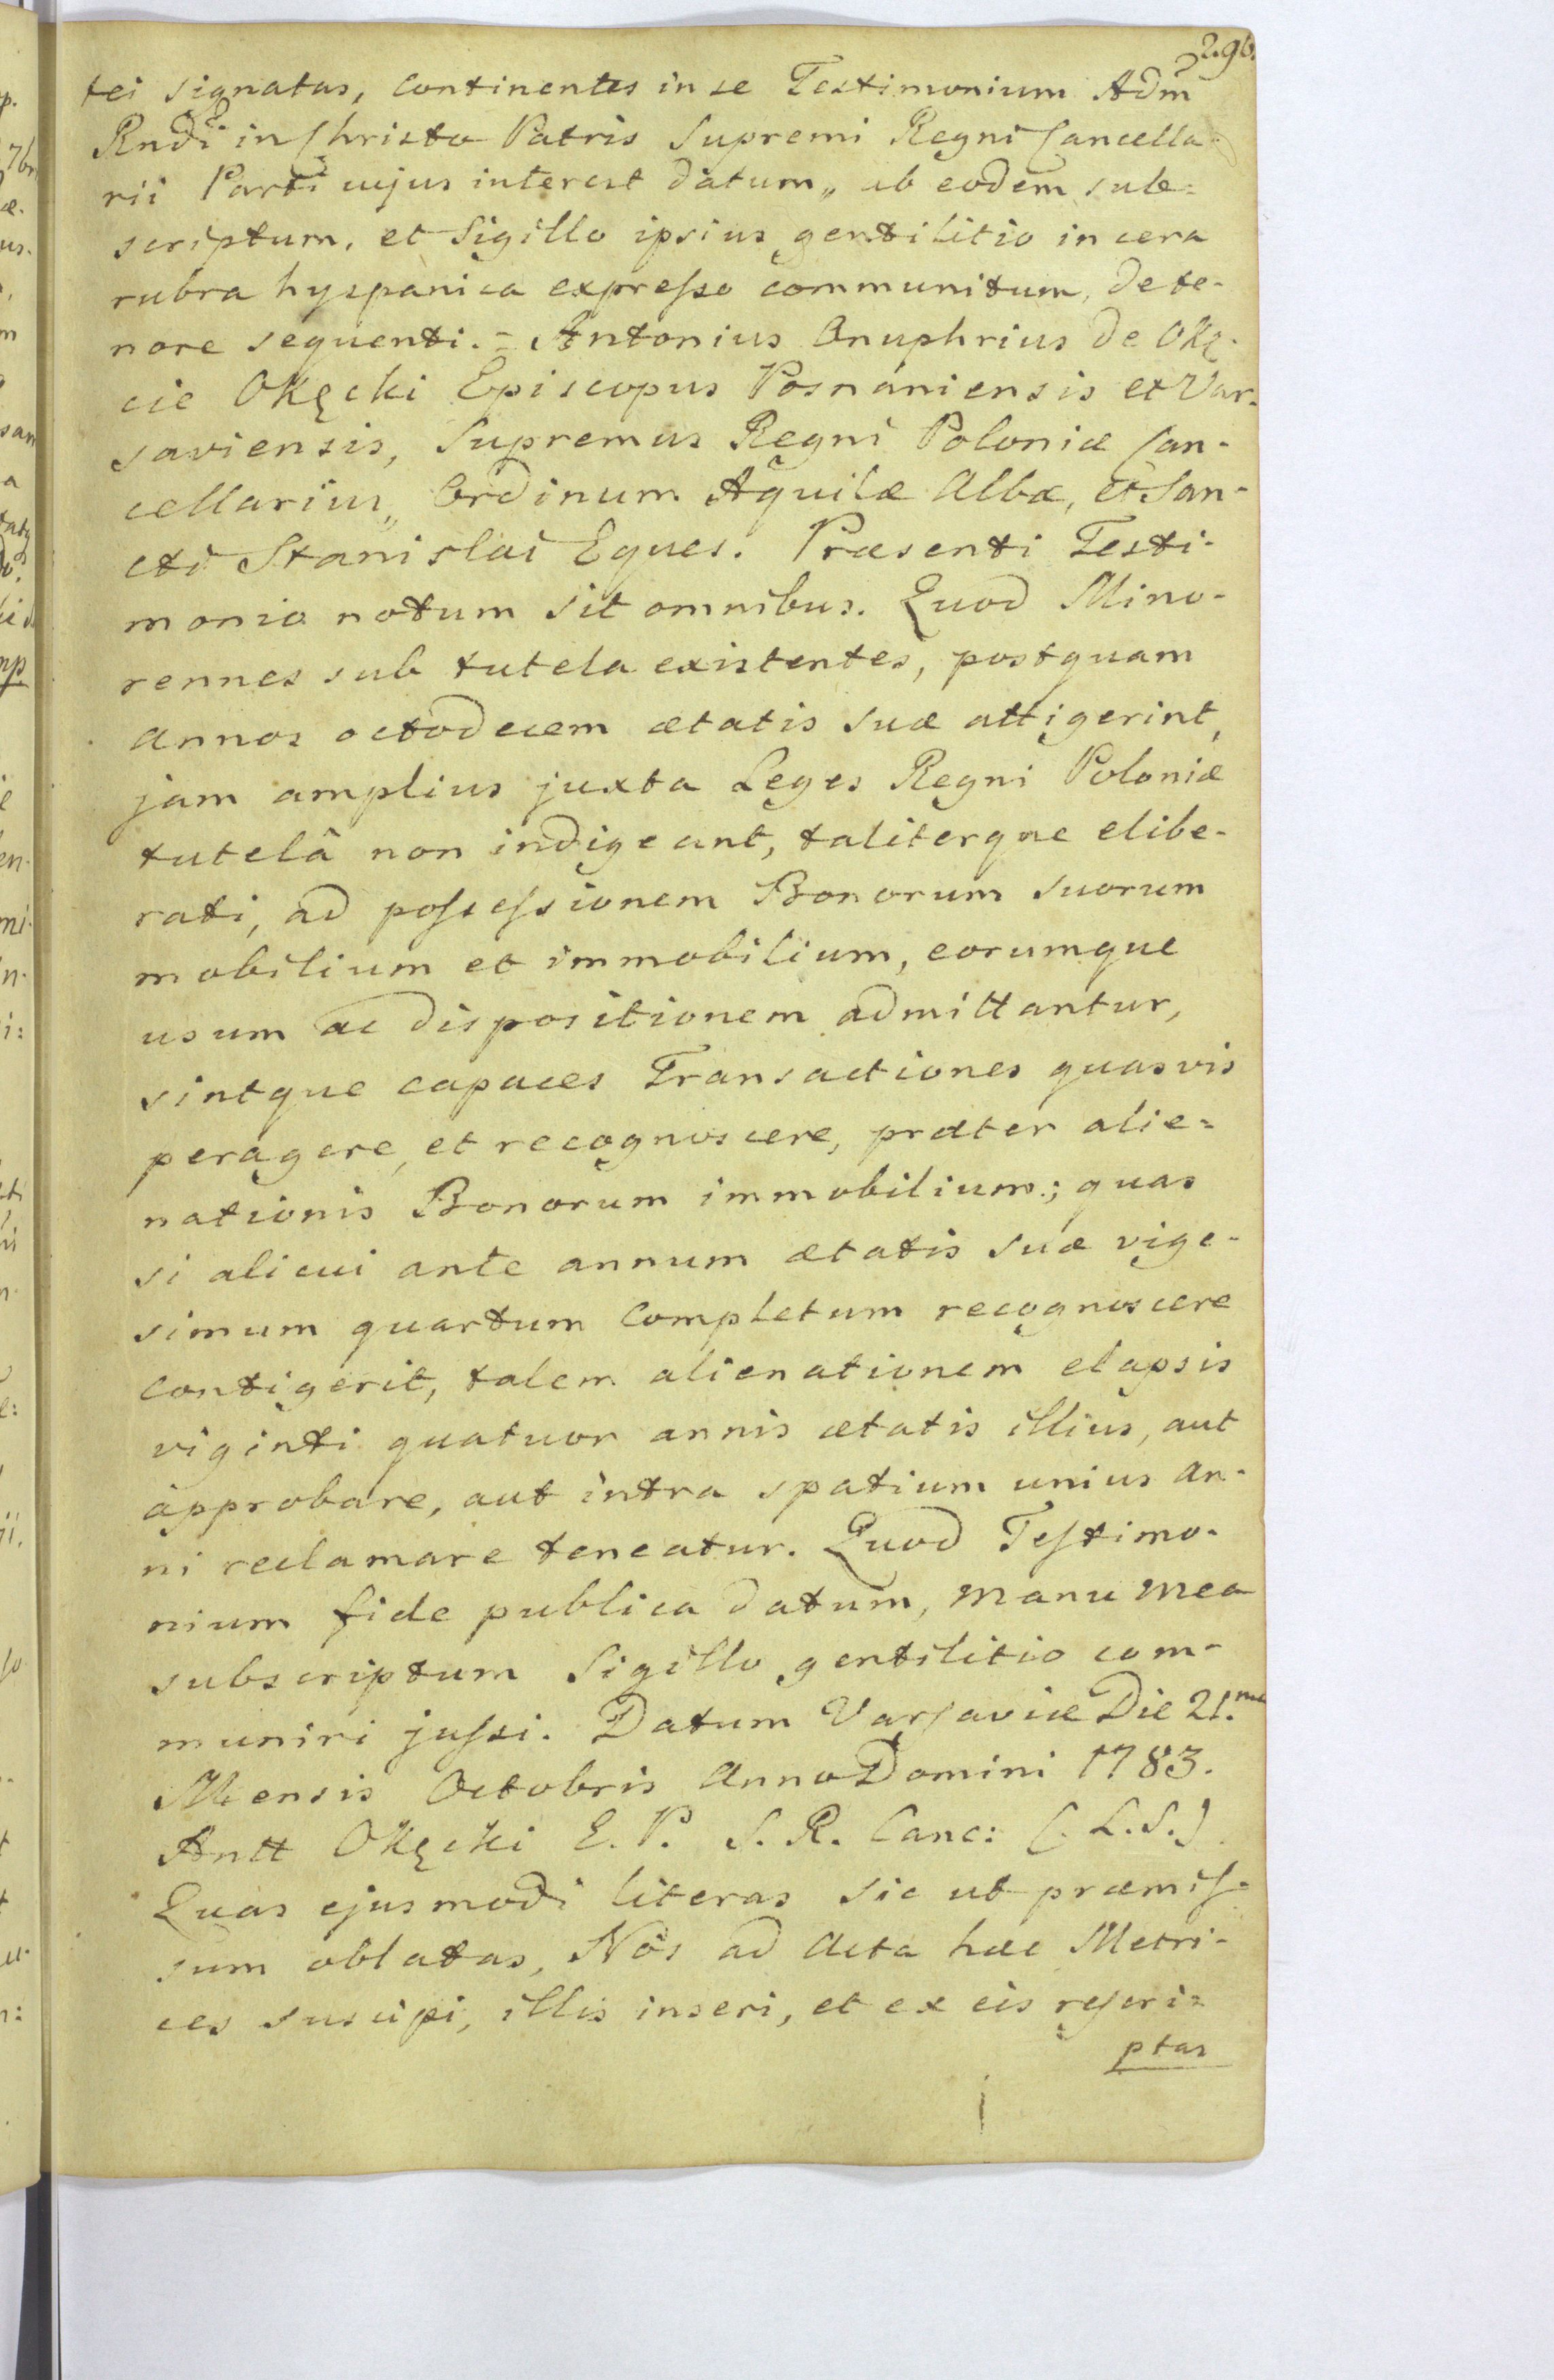 296.
tei signatas, Continentes in se Testimonium Adm
Rndi in Christo Patris Supremi Regni Cancella-
rii Parti cujus interest datum„ ab eodem sub=
scriptum, et Sigillo ipsius gentilitio in cera
rubra hyspanica expresso communitum, de te-
nore sequenti. = Antonius Onuphrius de Okę-
cie Okęcki Episcopus Posnaniensis et Var-
saviensis, Supremus Regni Poloniæ Can-
cellarius„ Ordinum Aquilæ Albæ, et San-
cti Stanislai Eques. Præsenti Testi-
monio notum sit omnibus. Quod Mino-
rennes sub tutela existentes, postquam
annos octodecem ætatis suæ attigerint,
jam amplius juxta Leges Regni Poloniæ
tutelâ non indigeant, taliterque elibe-
rati, ad possessionem Bonorum suorum
mobilium et immobilium, eorumque
usum ac dispositionem admittantur,
sintque capaces Transactiones quasvis
peragere, et recognoscere, præter alie=
nationis Bonorum immobilium; quas
si alicui ante annum ætatis suæ vige-
simum quartum Completum recognoscere
Contigerit, talem alienationem elapsis
viginti quatuor annis ætatis illius, aut
approbare, aut intra spatium unius an-
ni reclamare teneatur. Quod Testimo-
nium fide publica datum, manu mea
subscriptum Sigillo gentilitio com-
muniri jussi. Datum Varsaviæ Die 21.ma
Mensis Octobris Anno Domini 1783.
Antt Okęcki E. P. S. R. Canc: (L.S.)
Quas ejusmodi literas sic ut præmis-
sum oblatas, Nos ad Acta hæc Metri-
ces suscipi, illis inseri, et ex eis rescri=
ptas